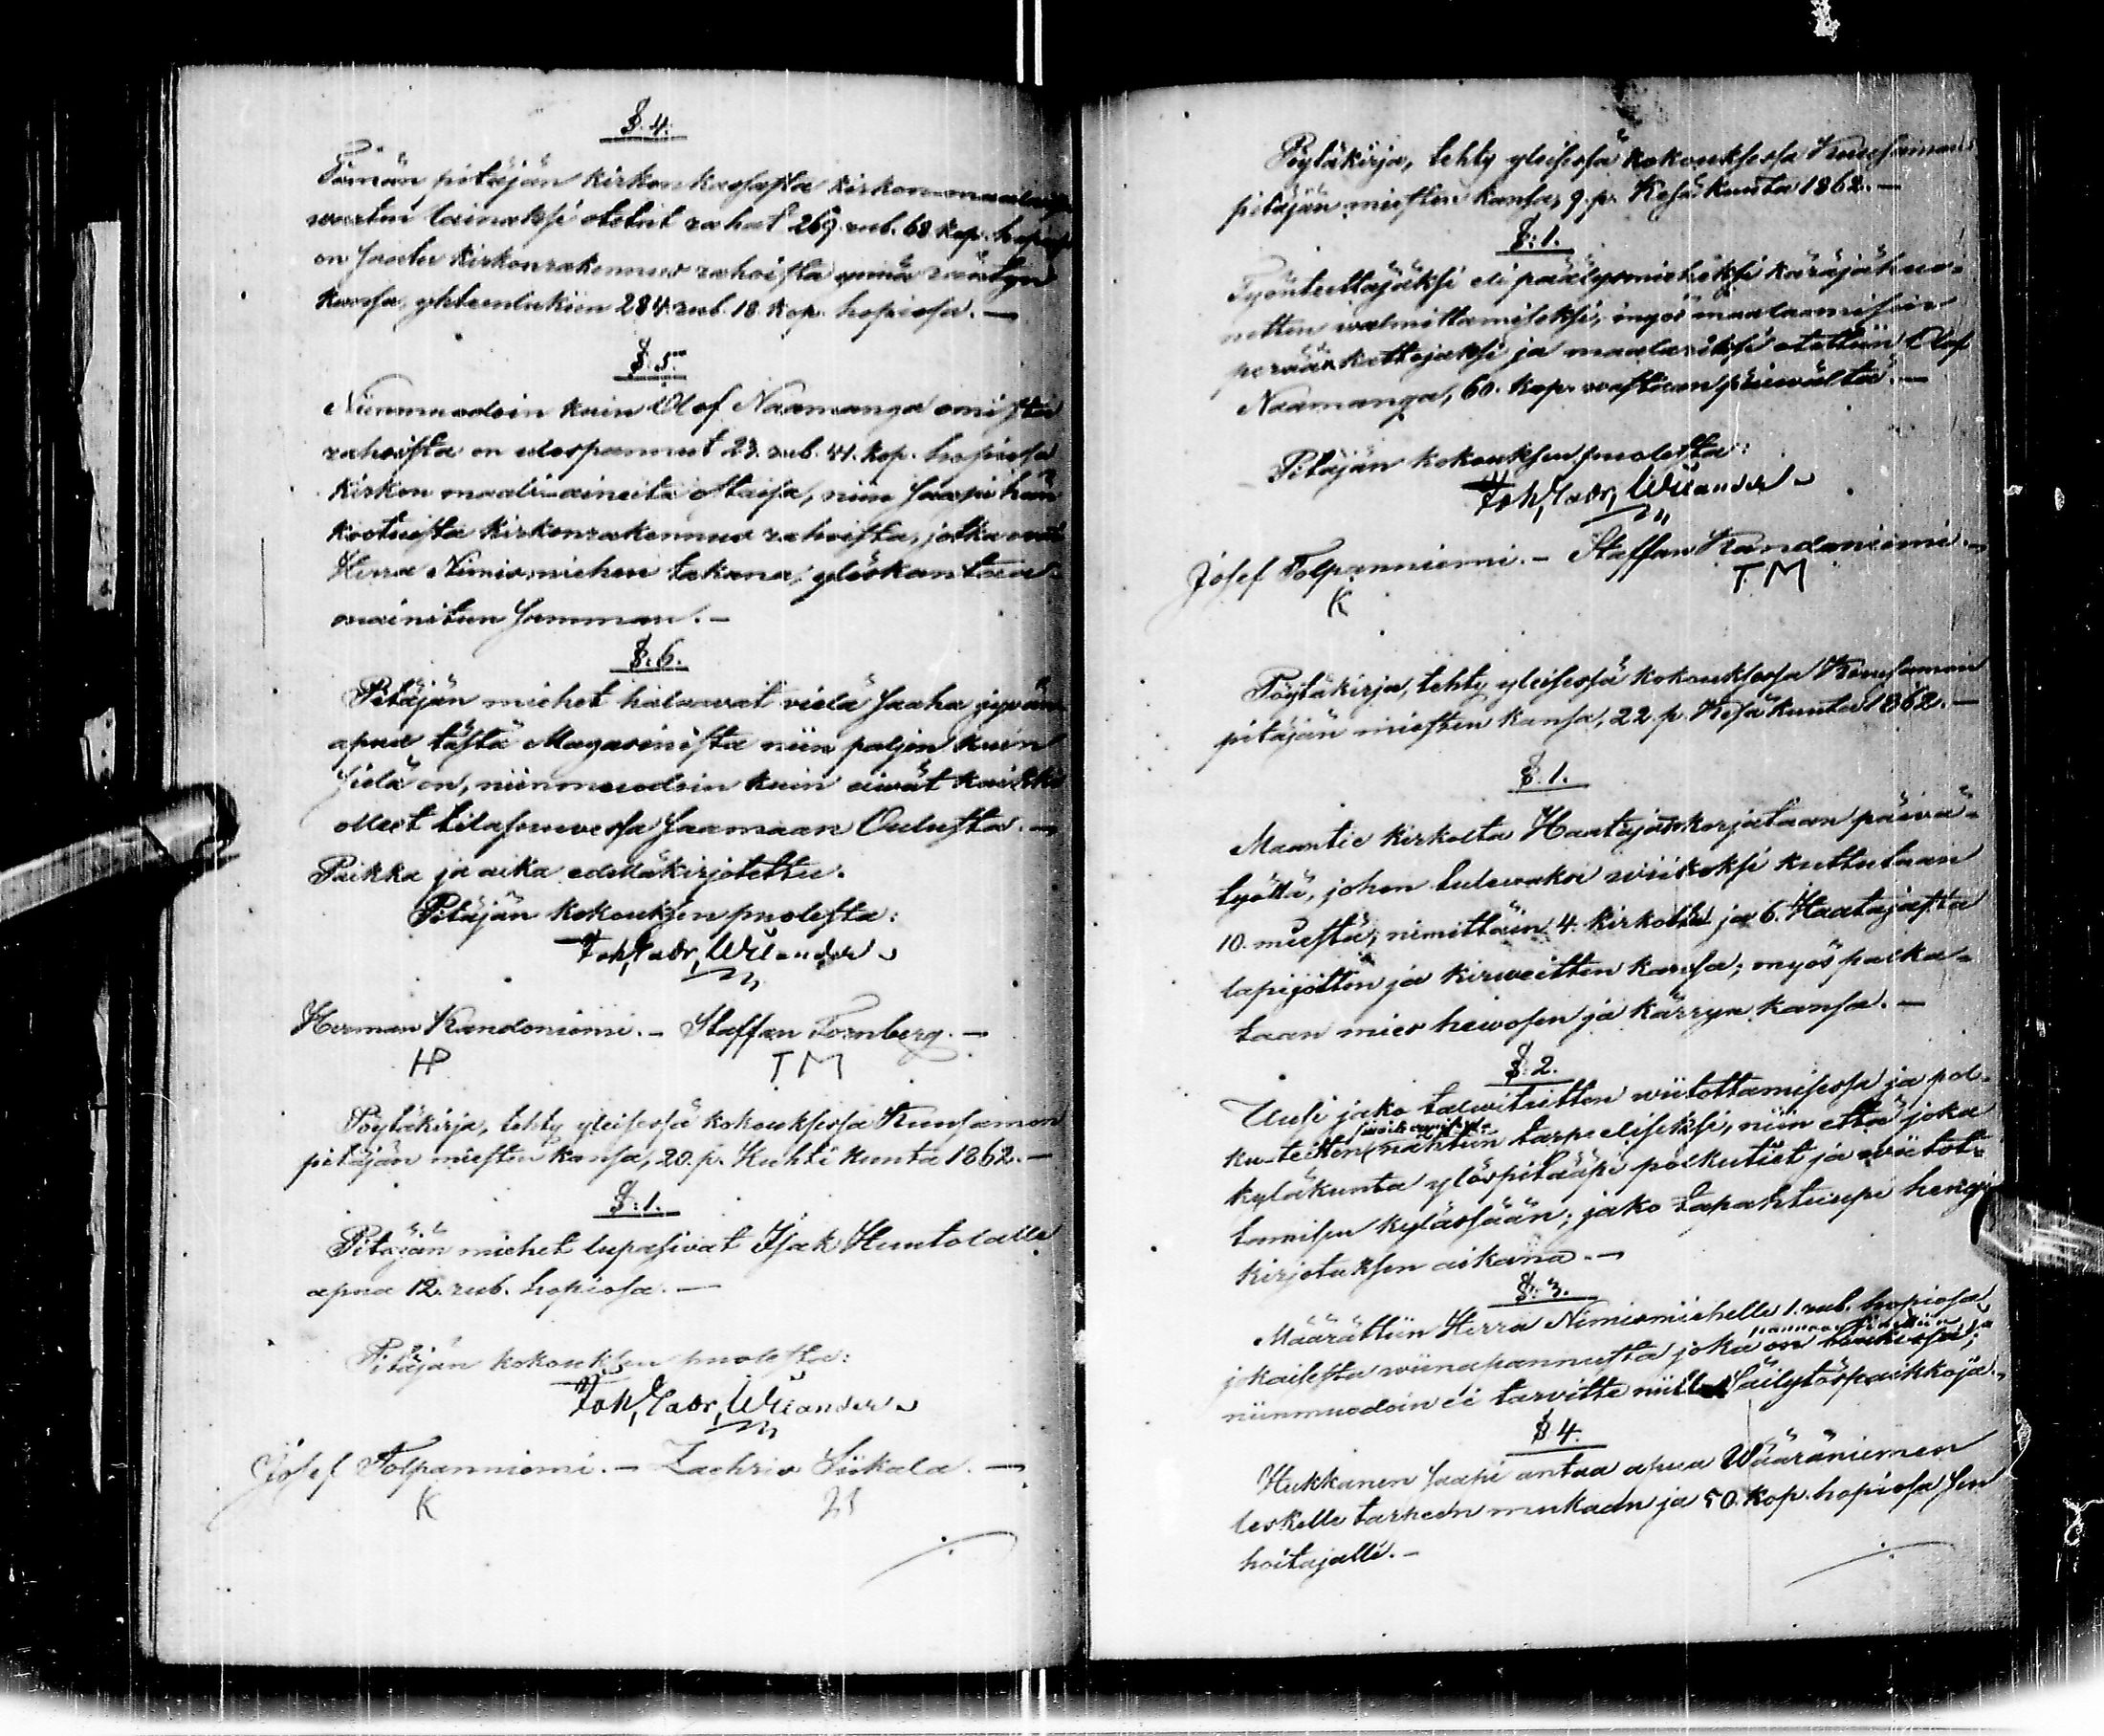 §. 4.
Tämän pitäjän kirkon kassasta kirkon-maalausta
warten lainaksi otetut rahat 269 rub. 68 kop. hopiosa
on saatu kirkonrakennus rahoista
kansa yhteenlukiin 284. rub. 18 kop. hopiosa. —
§. 5.
Niinmuodoin kuin Olof Naamanga omista
rahoista on ulospannut 23. rub. 41. kop. hopiosa
kirkon maali-aineita ostaisa, niin saapi hän
kootuista kirkonrakennus rahoista, jotka ovat
Herra Nimismiehen takana, ylöskantaa
mainitun summan. —
§. 6.
Pitäjän miehet haluavat vielä saaha jyvän
apua tästä Magasinista niin paljon kuin
sielä on, niinmuodoin kuin eivät kaikki
olleet tilasuuvessa saamaan Oulusta. —
Paikka ja aika edelläkirjotettu.
Pitäjän kokouksen puolesta:
Joh, Gabr, Wilander
Herman Kandoniemi. — Staffan Tornberg. —
HP TM
Pöytäkirja, tehty yleisessä kokouksessa Kuusamon
pitäjän miesten kansa, 20. p. Huhti kunta 1862. —
§. 1.
Pitäjän miehet lupasivat Isak Huutolalle
apua 12. rub. hopiosa. —
Pitäjän kokouksen puolesta:
Joh, Gabr, Wilander
Josef Tolpanniemi. — Zachris Siikala. —
K ZS
Pöytäkirja, tehty yleisessä kokouksessa Kuusamon
pitäjän miesten kansa, 9. p. Kesä kunta 1862. —
§. 1.
Työnteettäjäksi eli päälysmieheksi käräjähuo-
netten walmittamiseksi, myös maalaamisen
perään kattojaksi ja maalariksi otettiin Olof
Naamanga, 60. kop. wastaan päiwältä. —
Pitäjän kokouksen puolesta:
Joh, Gabr, Wilander
Josef Tolpanniemi. — Staffan Kandoniemi. —
K TM
Pöytäkirja, tehty yleisessä kokouksessa Kuusamon
pitäjän miesten kansa, 22. p. Kesä kunta 1862. —
§. 1.
Maantie kirkolta Haatajaan korjataan päivä-
työllä, johon tulevaksi wiikoksi kuttutaan
10. miestä, nimittäin 4. kirkolta ja 6. Haatajasta
lapijoitten ja kirweitten kansa; myös palka-
taan mies hewosen ja kärryn kansa. —
§. 2.
Uusi jako talwiteitten wiitottamisessa ja pol-
ku-teitten nähtiin tarpeeliseksi, niin että joka
kyläkunta ylöspitääpi polkutiet ja wiitot-
tamisen kylässään; jako tapahtuupi hengi
kirjotuksen aikana. —
§. 3.
Määrättiin Herra Nimismiehelle 1. rub. hopiosa
jokaisesta wiinapannusta joka on
niinmuodoin ei tarvitte niille Säilytöspaikkoja. —
§ 4.
Hukkanen saapi antaa apua Wääräniemen
leskelle tarheen mukaan ja 50. kop. hopiosa sen
hoitajalle. —